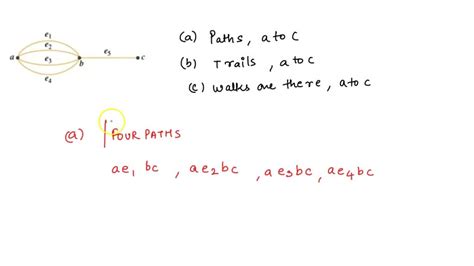 e1
e2
e3
e4
e5
a
b
c
(a) Paths, a to c
(b) Trails, a to c
(c) walks are there, a to c
(a) FOUR PATHS
ae1 bc, ae2bc, ae3bc, ae4bc